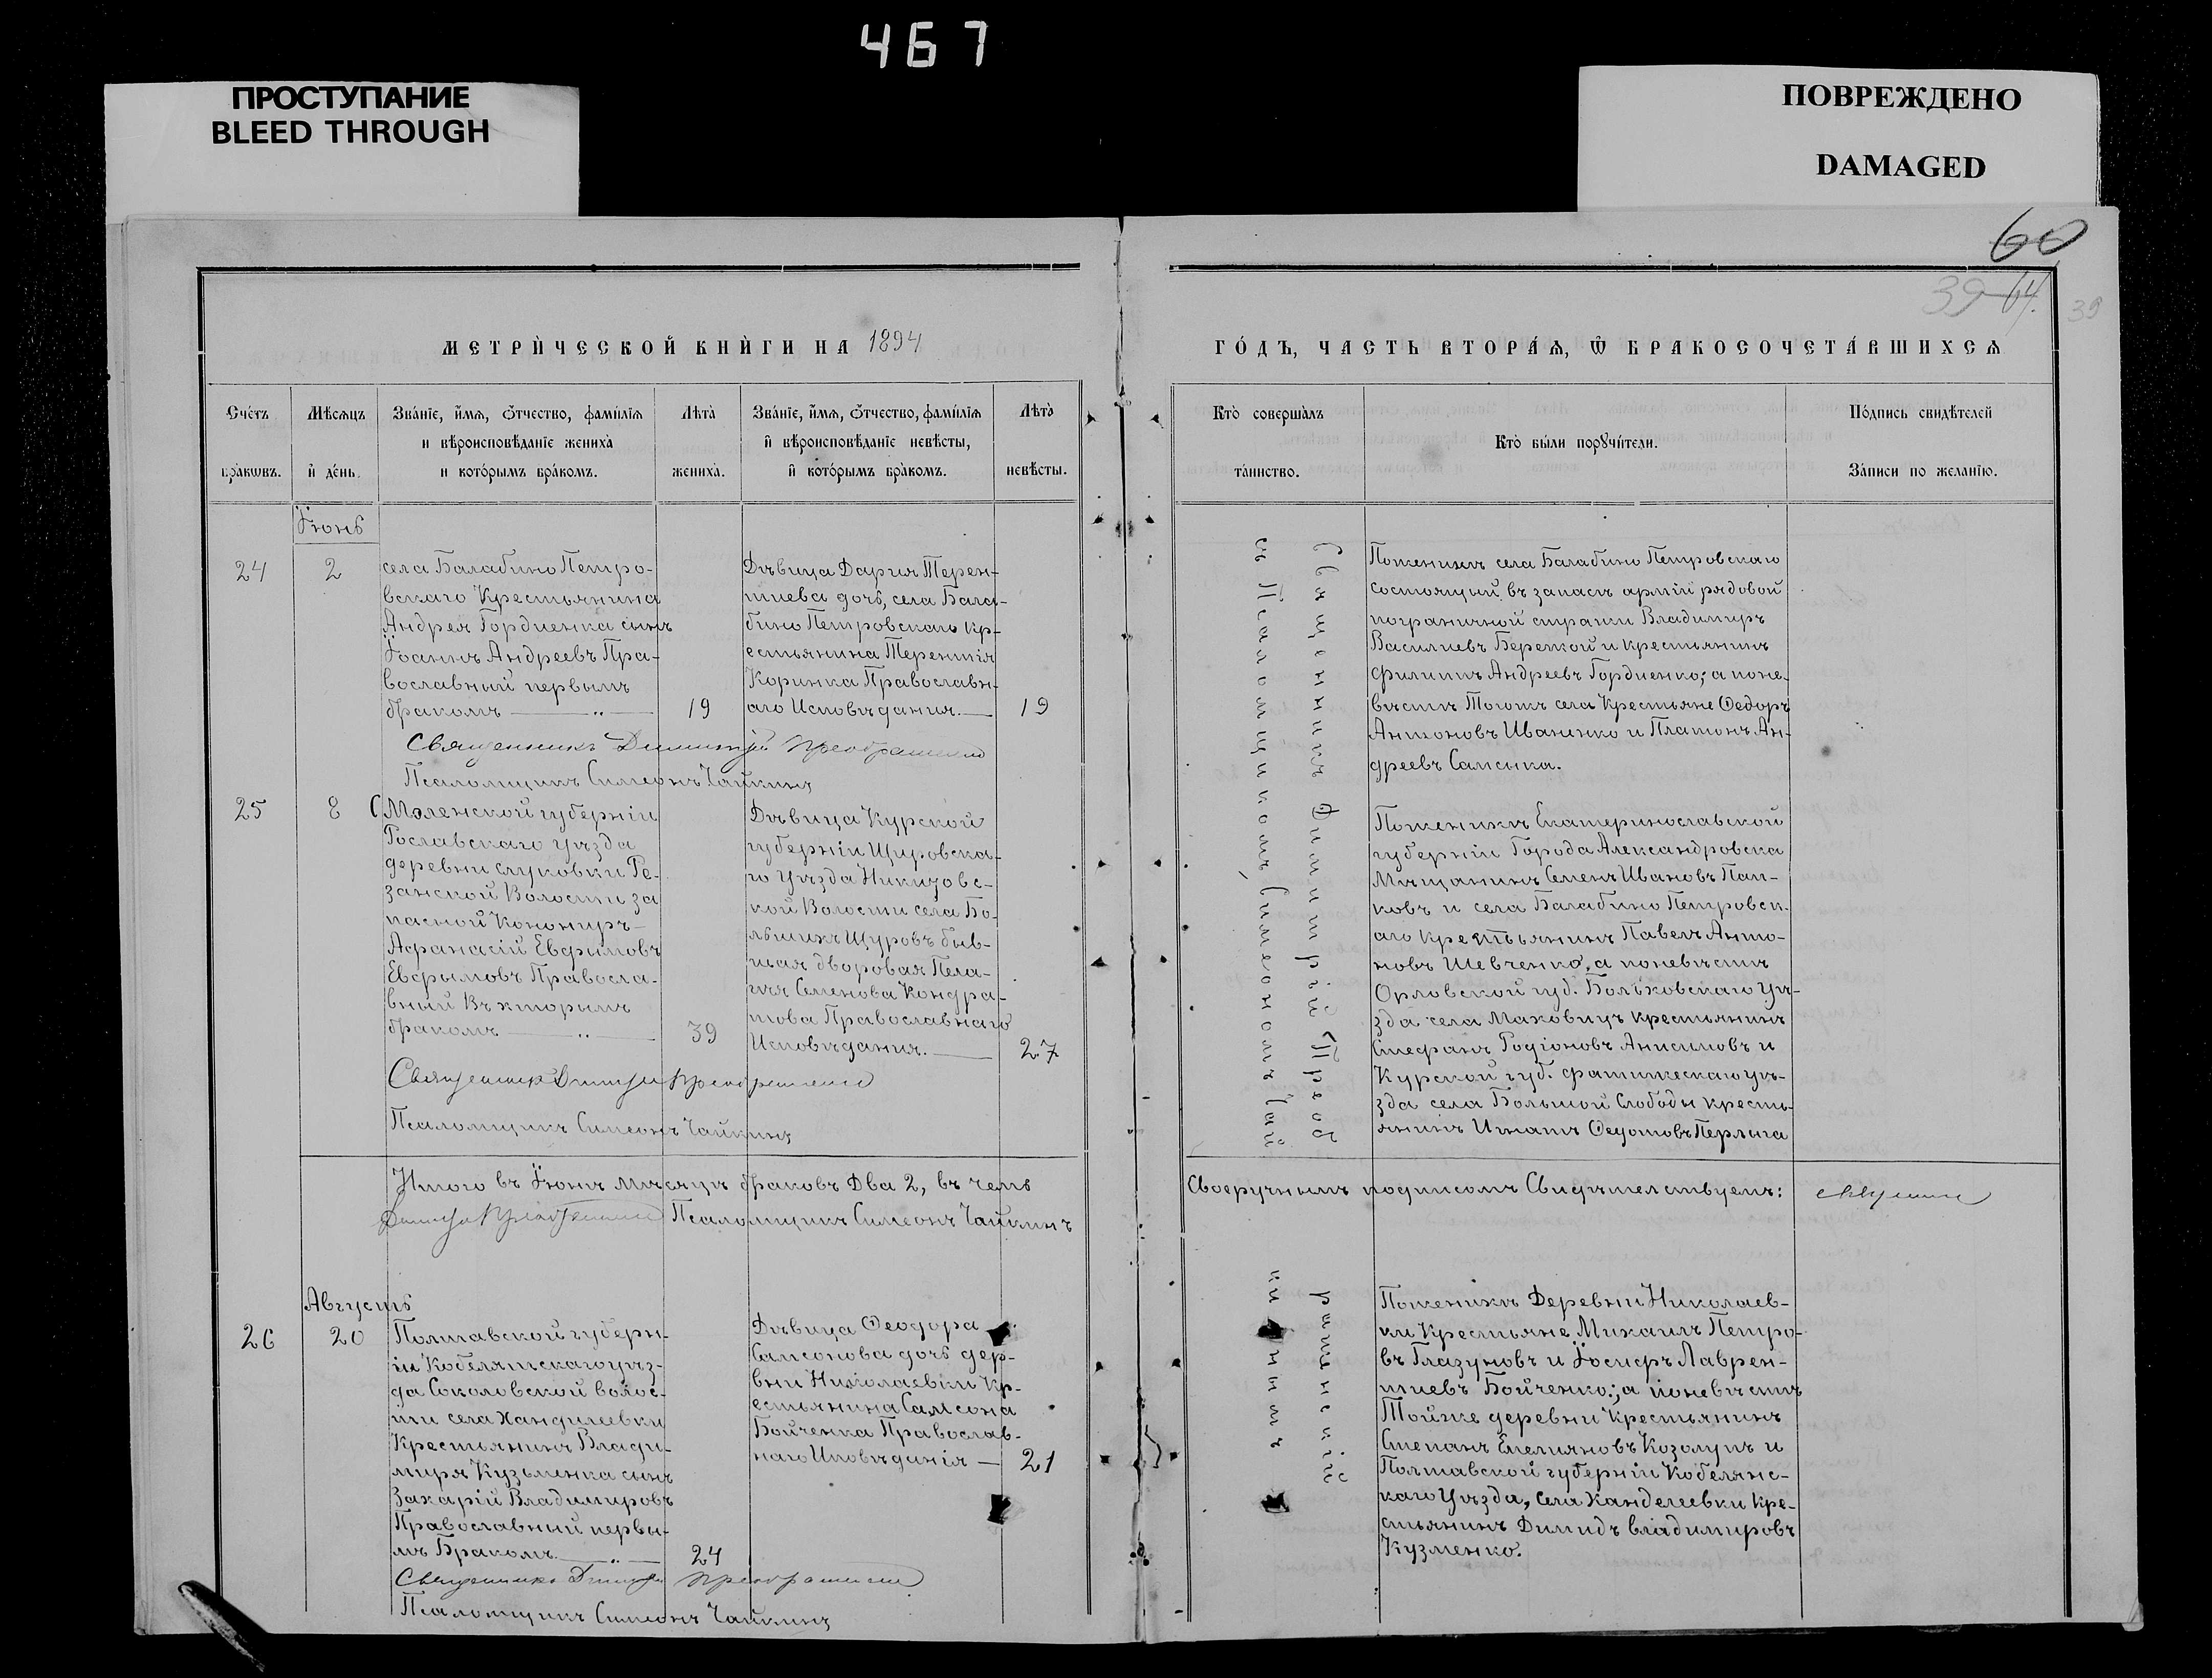 467
ПРОСТУПАНИЕ
BLEED THROUGH
ПОВРЕЖДЕНО
DAMAGED
60
39 64.
39
МЕТРИ́ЧЕСКОЙ КНИ́ГИ НА 1894
ГО́ДЪ, ЧАСТЬ ВТОРА́Ѧ, Ѽ БРАКОСОЧЕТА́ВШИХСѦ
Сче́тъ
бра́кѡвъ.
Мѣ́сѧцъ
и҆ де́нь.
Зва́нїе, и҆́мѧ, ѻ҆́тчество, фами́лїѧ
и вѣроисповѣ́данїе жениха̀
и кото́рымъ бра́комъ.
Лѣта̀
жениха̀.
Зва́нїе, и҆́мѧ, ѻ҆́тчество, фами́лїѧ
и҆ вѣроисповѣ́данїе невѣ́сты,
и҆ кото́рымъ бра́комъ.
Лѣта̀
невѣ́сты.
Кто̀ соверша́лъ
та́инство.
Кто̀ бы́ли порꙋчи́тели.
По́дпись свидѣ́телей
За́писи по жела́нїю.
Їюнь
24
2
села Балабино Петро-
вскаго Крестьянина
Андрея Гордиенка сынъ
Їоаннъ Андреевъ Пра-
вославный первымъ
бракомъ
19
Дѣвица Дария Терен-
тиева дочь, села Бала-
бино Петровскаго кр-
естьянина Терентія
Коринка Православн-
аго Исповѣдания.
19
Священникъ Димитрій Преображенскій
Псаломщикъ Симеонъ Чайкинъ
Поженихѣ села Балабино Петровскаго
состоящий въ запасѣ арміи рядовой
пограничной стражи Владимиръ
Василиевъ Береткой и крестьянинъ
Филиппъ Андреевъ Гордиенко; а поне-
вѣстѣ Тогожъ села Крестьяне Ѳедоръ
Антоновъ Иваненко и Платонъ Ан-
дреевъ Самсика.
25
8
СМоленской губерніи
Рославскаго уѣзда
деревни слуковки Ре-
занской Волости за
пасной Кононир-ъ
Афанасій Евфимовъ
Ефрымовъ Правосла-
вный Въ хторымъ
бракомъ
39
Дѣвица Курской
губерніи Щировска-
го уѣзда Никизовс-
кой Волости села Бо-
льшихъ Щуровъ быв-
шая дворовая Пела-
гия Семенова Кондра-
това Православнаго
Исповѣдания.
27
Священникъ Димитрій Преображенскій
Псаломщикъ Симеонъ Чайкинъ
Поженихѣ Екатеринославской
губерніи Города Александровска
Мѣщанинъ Семенъ Ивановъ Пап-
ковъ и села Балабино Петровск-
аго крестьянинъ Павелъ Анто-
новъ Шевченко, а поневѣстѣ
Орловской губ. Больховскаго уѣ-
зда села Маховицъ крестьянинъ
Стефанъ Родіоновъ Анисимовъ и
Курской губ. фатижескаго уѣ-
зда села Большой Слободы кресть-
янинъ Игнатъ Ѳедотовъ Перлыга
Священникъ Димитрій Преоб
съ Псаломщикомъ Симеономъ Чай
Итого въ Їюнѣ мѣсяцѣ браковъ Два 2, въ чемъ
Своеручнымъ подписомъ Свидѣтелствуемъ:
Димитрій Преображенскій Псаломщикъ Симеонъ Чайкинъ
Августъ
26
20
Полтавской губерн-
іи Кобелятскаго уѣз-
да Соколовской волос-
ти села Хандилеевки
Крестьянина Влади-
мира Кузьменка сынъ
Захарій Владимировъ
Православный первы-
мъ Бракомъ
24
Дѣвица Ѳеодора
Самсонова дочь дер-
вни Николаевки Кр-
естьянина Самсона
Бойченка Православ-
наго Исповѣданія
21
Священникъ Димитрій Преображенскій
Псаломщикъ Симеонъ Чайкинъ
раженскій
кинымъ
Поженихѣ Деревни Николаев-
ки Крестьяне Михаилъ Петро-
въ Глазуновъ и Їосифъ Лаврен-
тиевъ Бойченко; а поневѣстѣ
Тойже деревни Крестьянинъ
Степанъ Емелияновъ Козолупъ и
Полтавской губерніи Кобелянс-
каго Уѣзда, села Канделеевки Кре-
стьянинъ Димидъ владимировъ
Кузменко.